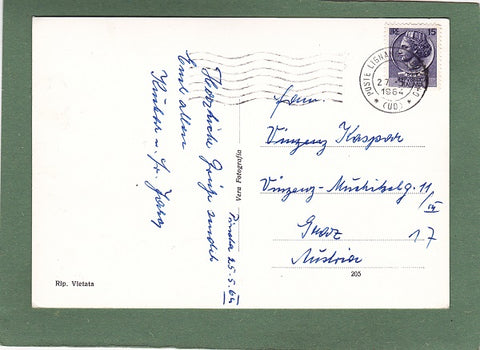 Pineta 25.5.64
Herzliche Grüße sendet
Euch allen
u. Fr.
Rip. Vietata
Vera Fotografia
205
LIRE 15
POSTE LIGNANO
27
1964
(UD)
Fam.
Vinzenz Kaspar
Vinzenz-Muchitschg. 11/IV
Graz 17
Austria